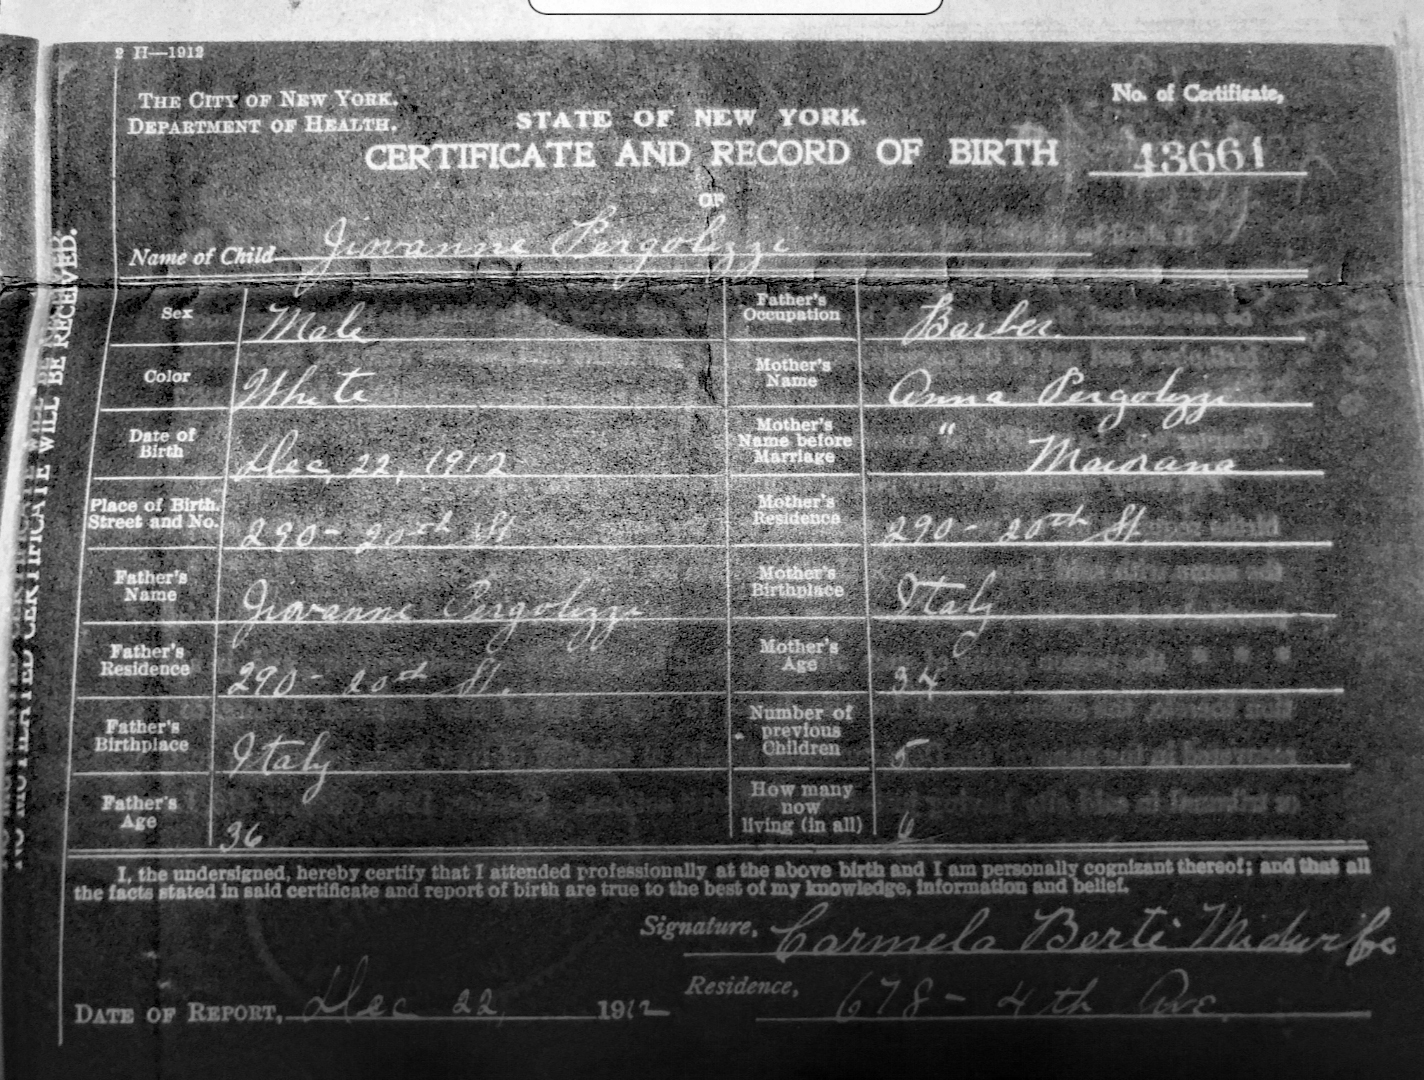 2 H—1912
THE CITY OF NEW YORK.
DEPARTMENT OF HEALTH.
STATE OF NEW YORK.
No. of Certificate,
CERTIFICATE AND RECORD OF BIRTH
43661
OF
Name of Child Jiovanne Pergolizzi
Sex Male
Father's Occupation Barber
Color White
Mother's Name Anna Pergolizzi
Date of Birth Dec, 22, 1912
Mother's Name before Marriage " Maiorana
Place of Birth, Street and No. 290 - 20th St
Mother's Residence 290 - 20th St
Father's Name Jiovanne Pergolizzi
Mother's Birthplace Italy
Father's Residence 290 - 20th St.
Mother's Age 34
Father's Birthplace Italy
Number of previous Children 5
Father's Age 36
How many now living (in all) 6
I, the undersigned, hereby certify that I attended professionally at the above birth and I am personally cognizant thereof; and that all
the facts stated in said certificate and report of birth are true to the best of my knowledge, information and belief.
Signature, Carmela Berti Midwife
Residence, 678 - 4th Ave.
DATE OF REPORT, Dec 22, 1912
NO MUTILATED CERTIFICATE WILL BE RECEIVED.